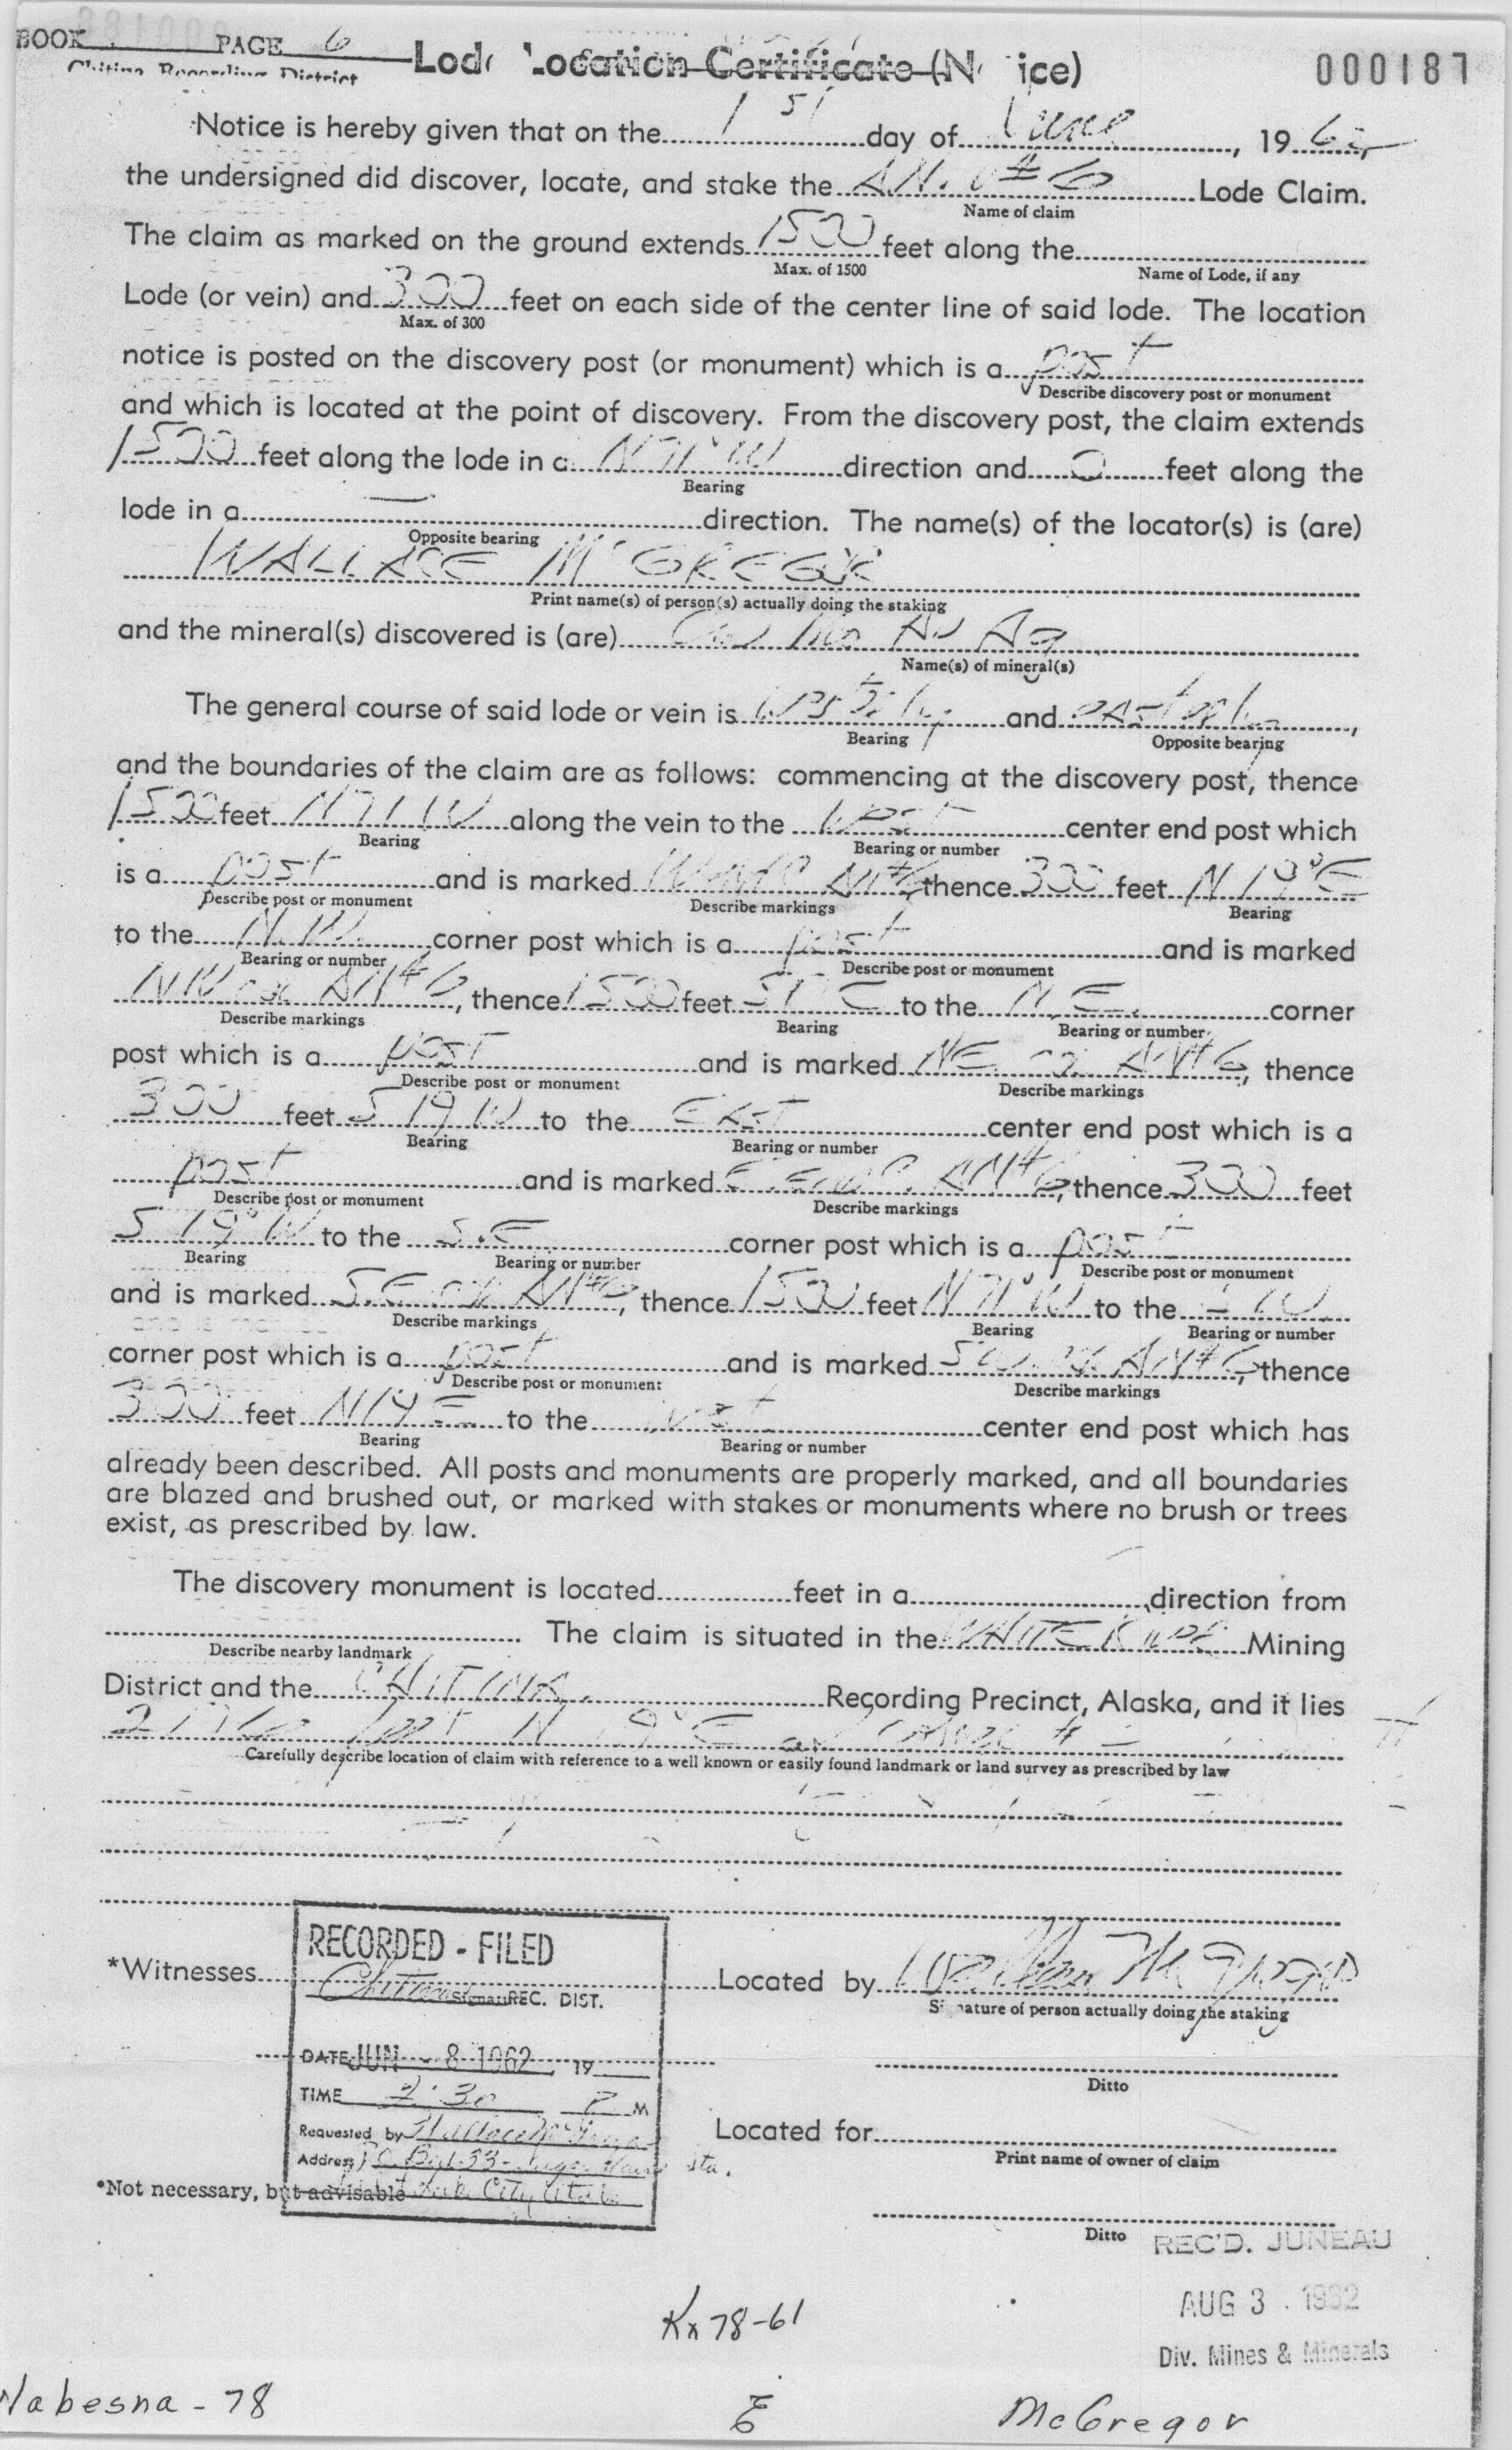 BOOK PAGE 6
Chitina Recording District
Lode Location Certificate (Notice)
000187
Notice is hereby given that on the 1st day of June, 1962
the undersigned did discover, locate, and stake the #6 Lode Claim.
Name of claim
The claim as marked on the ground extends 1500 feet along the
Max. of 1500 Name of Lode, if any
Lode (or vein) and 300 feet on each side of the center line of said lode. The location
Max. of 300
notice is posted on the discovery post (or monument) which is a post
Describe discovery post or monument
and which is located at the point of discovery. From the discovery post, the claim extends
1500 feet along the lode in a N71°W direction and 0 feet along the
Bearing
lode in a — direction. The name(s) of the locator(s) is (are)
Opposite bearing
WALLACE McGREGOR
Print name(s) of person(s) actually doing the staking
and the mineral(s) discovered is (are) Cu Mo Au Ag
Name(s) of mineral(s)
The general course of said lode or vein is westerly and easterly,
Bearing Opposite bearing
and the boundaries of the claim are as follows: commencing at the discovery post, thence
1500 feet N71W along the vein to the West center end post which
Bearing Bearing or number
is a post and is marked AN#6 thence 300 feet N19°E
Describe post or monument Describe markings Bearing
to the N.W. corner post which is a post and is marked
Bearing or number Describe post or monument
NW cor AN#6, thence 1500 feet S71E to the N.E. corner
Describe markings Bearing Bearing or number
post which is a post and is marked NE cor AN#6, thence
Describe post or monument Describe markings
300 feet S19W to the EAST center end post which is a
Bearing Bearing or number
post and is marked E. End C. AN#6, thence 300 feet
Describe post or monument Describe markings
S19°W to the S.E corner post which is a post
Bearing Bearing or number Describe post or monument
and is marked S.E cor AN#6, thence 1500 feet N71°W to the SW
Describe markings Bearing Bearing or number
corner post which is a post and is marked SW cor AN#6, thence
Describe post or monument Describe markings
300 feet N19E to the west center end post which has
Bearing Bearing or number
already been described. All posts and monuments are properly marked, and all boundaries
are blazed and brushed out, or marked with stakes or monuments where no brush or trees
exist, as prescribed by law.
The discovery monument is located feet in a direction from
. The claim is situated in the WHITE RIVER Mining
Describe nearby landmark
District and the CHITINA Recording Precinct, Alaska, and it lies
feet N 19°E
Carefully describe location of claim with reference to a well known or easily found landmark or land survey as prescribed by law
RECORDED - FILED
*Witnesses Located by Wallace McGregor
Chitina REC. DIST.
Signature of person actually doing the staking
DATE JUN - 8 1962 19
Ditto
TIME 2:30 P M
Requested by Wallace McGregor
Located for
Address Sugar House Sta.
Print name of owner of claim
*Not necessary, but advisable
Lake City Utah
Ditto
REC'D. JUNEAU
AUG 3 1962
Div. Mines & Minerals
Kx 78-61
Nabesna - 78
McGregor